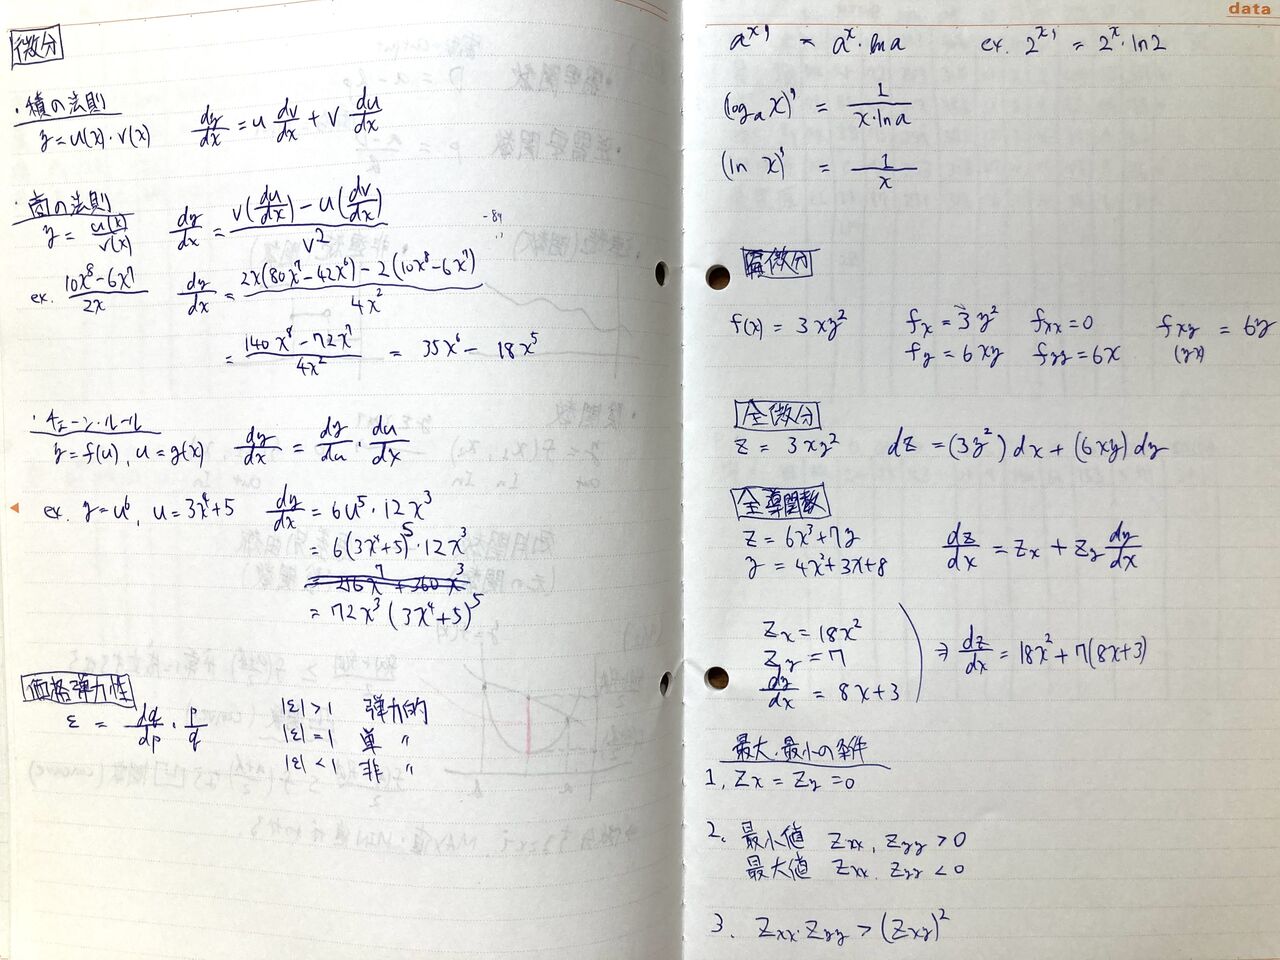 微分
・積の法則
y = u(x)・v(x)   dy/dx = u dv/dx + v du/dx
・商の法則
y = u(x)/v(x)   dy/dx = (v(du/dx) - u(dv/dx))/v²
ex. (10x⁸-6x⁷)/2x   dy/dx = (2x(80x⁷-42x⁶) - 2(10x⁸-6x⁷))/4x²
= (140x⁸ - 72x⁷)/4x² = 35x⁶ - 18x⁵
・チェーン・ルール
y = f(u), u = g(x)   dy/dx = dy/du・du/dx
ex. y = u⁶, u = 3x⁴+5   dy/dx = 6u⁵・12x³
= 6(3x⁴+5)⁵・12x³
= 72x³(3x⁴+5)⁵
価格弾力性
ε = dq/dp・p/q
|ε| > 1 弾力的
|ε| = 1 単 〃
|ε| < 1 非 〃
data
aˣ' = aˣ・ln a   ex. 2ˣ' = 2ˣ・ln2
(logₐ x)' = 1/(x・ln a)
(ln x)' = 1/x
偏微分
f(x) = 3xy²   fx = 3y²   fxx = 0   fxy = 6y
fy = 6xy   fyy = 6x   (yx)
全微分
z = 3xy²   dz = (3y²)dx + (6xy)dy
全導関数
z = 6x³+7y   dz/dx = Zx + Zy dy/dx
y = 4x²+3x+8
Zx = 18x²
Zy = 7   ⇒ dz/dx = 18x²+7(8x+3)
dy/dx = 8x+3
最大・最小の条件
1. Zx = Zy = 0
2. 最小値 Zxx, Zyy > 0
最大値 Zxx, Zyy < 0
3. Zxx・Zyy > (Zxy)²